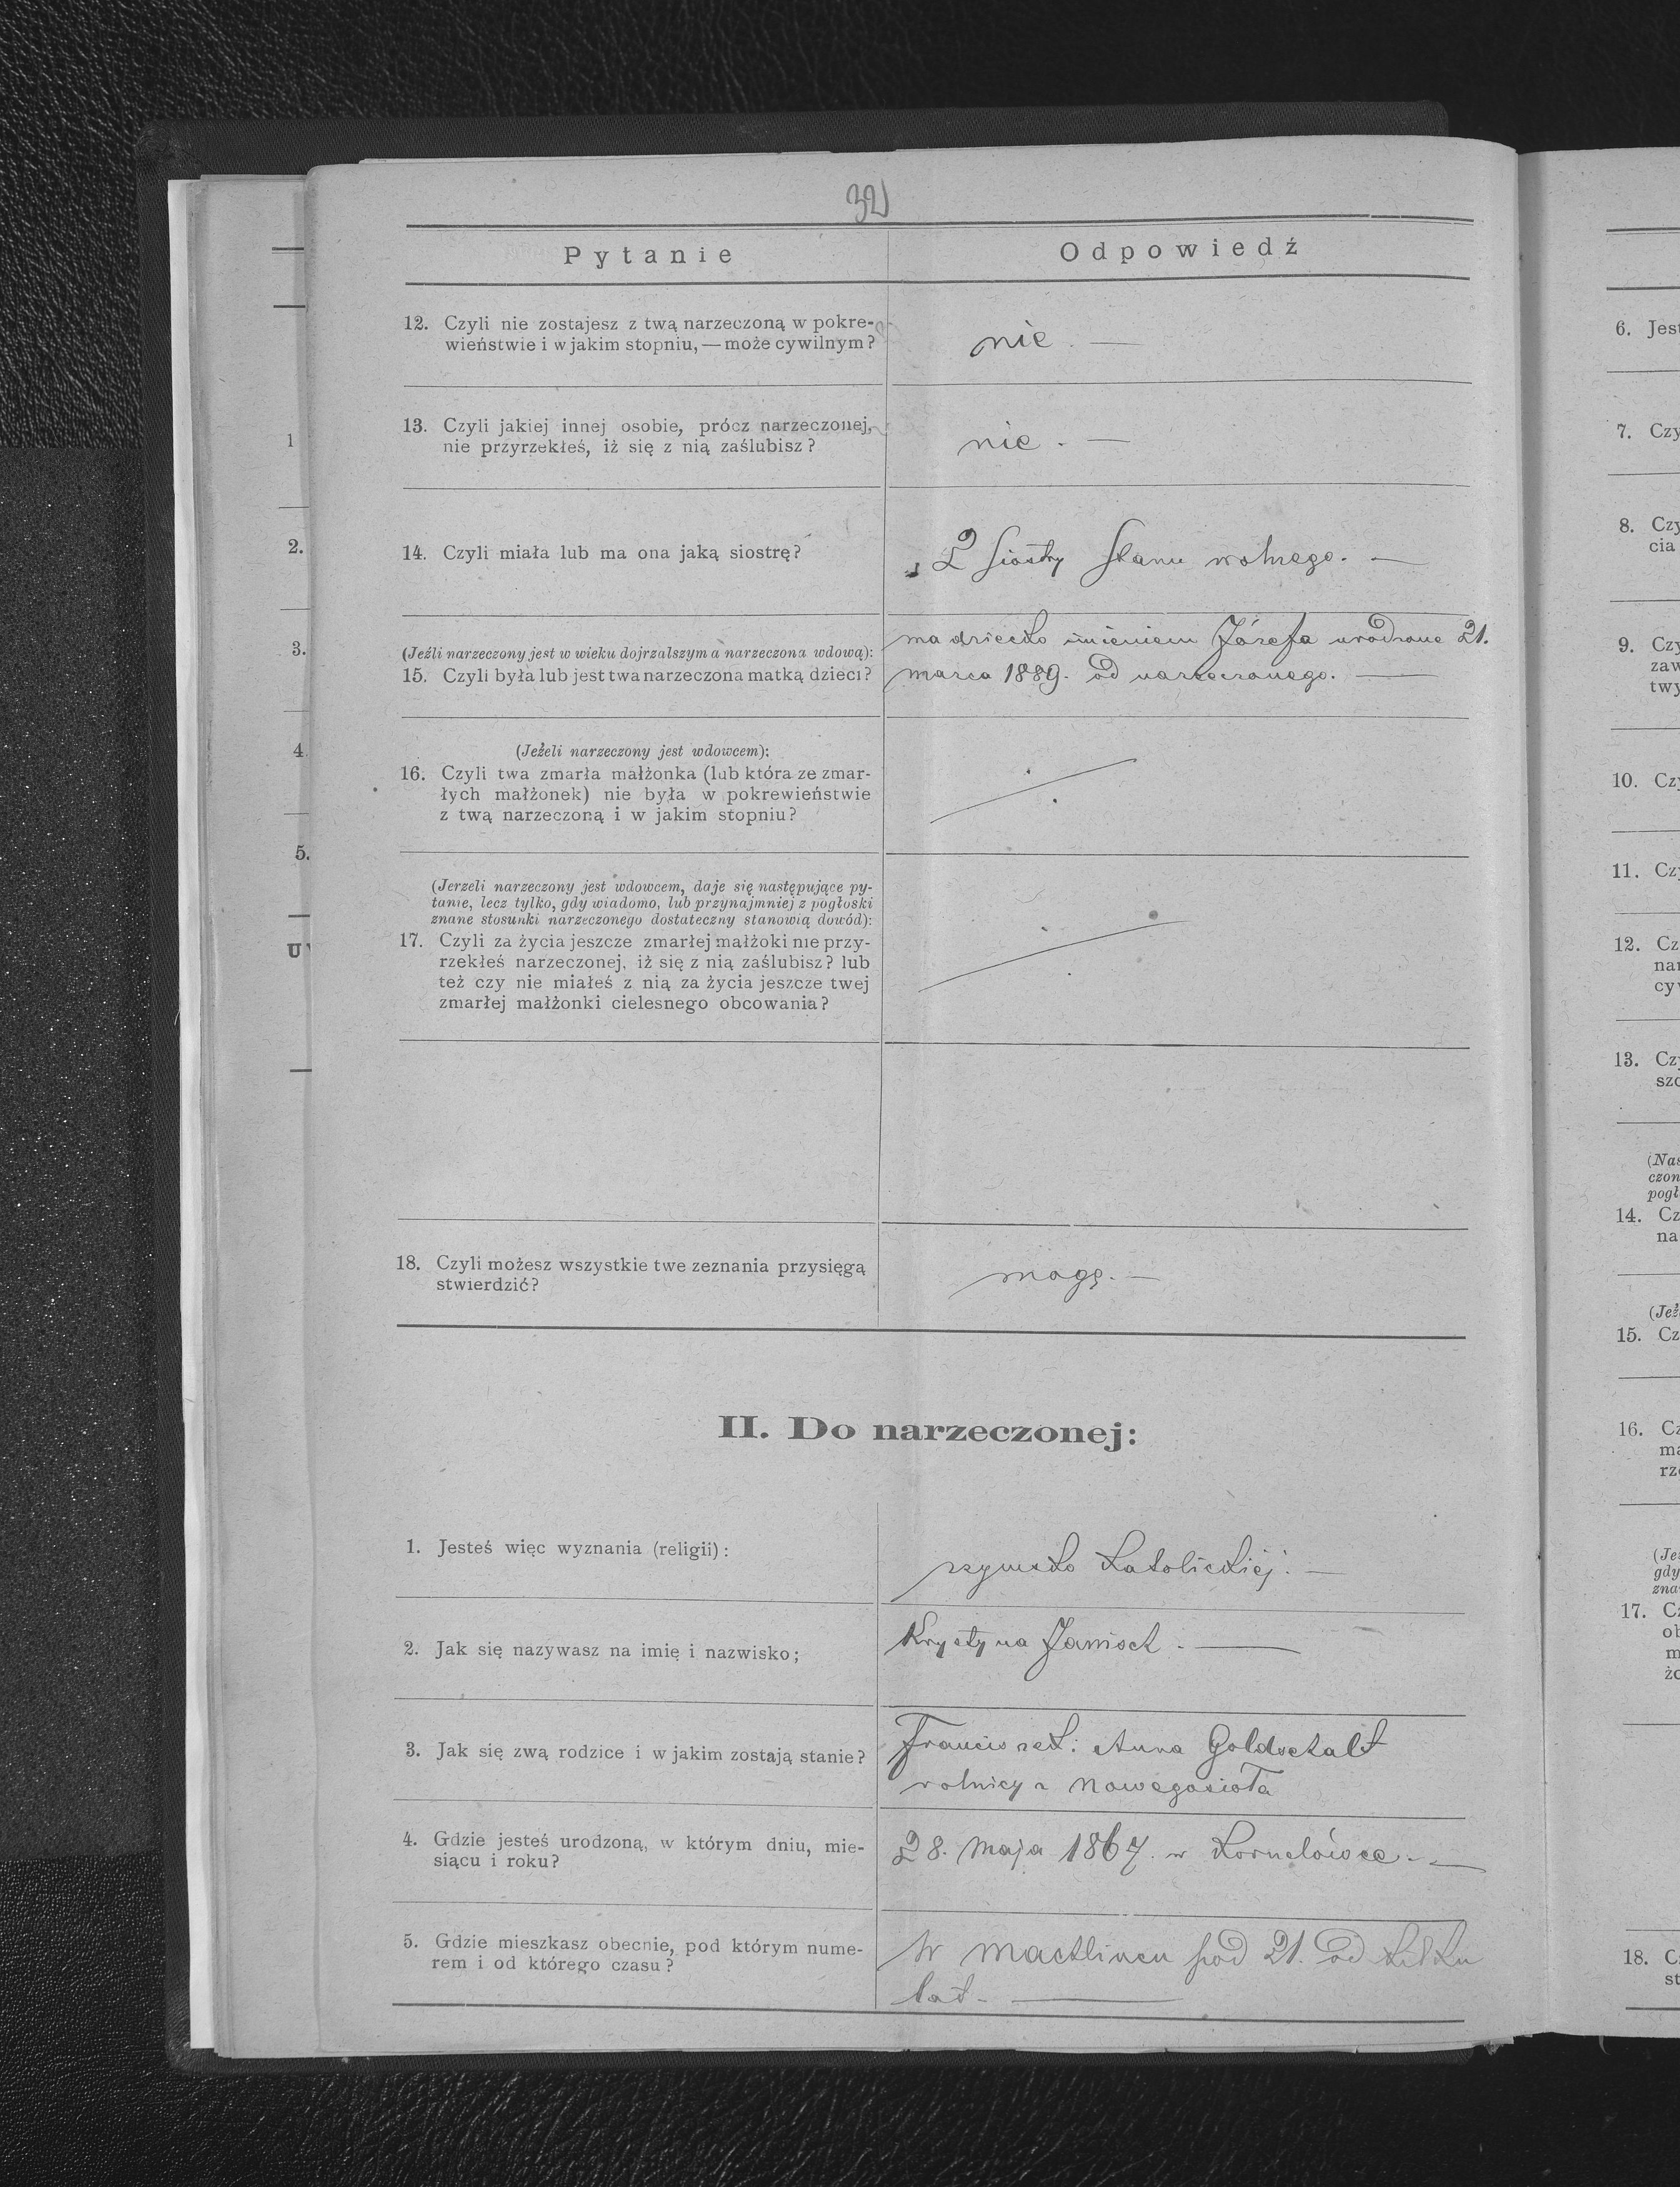 32
Pytanie
Odpowiedź
12. Czyli nie zostajesz z twą narzeczoną w pokre-
wieństwie i w jakim stopniu, — może cywilnym?
nie. —
13. Czyli jakiej innej osobie, prócz narzeczonej,
nie przyrzekłeś, iż się z nią zaślubisz?
nie. —
14. Czyli miała lub ma ona jaką siostrę?
2 siostry stanu wolnego. —
(Jeźli narzeczony jest w wieku dojrzalszym a narzeczona wdową):
15. Czyli była lub jest twa narzeczona matką dzieci?
ma dziecko imieniem Józefa urodzone 21.
marca 1889. od narzeczonego. —
(Jeżeli narzeczony jest wdowcem):
16. Czyli twa zmarła małżonka (lub która ze zmar-
łych małżonek) nie była w pokrewieństwie
z twą narzeczoną i w jakim stopniu?
(Jerzeli narzeczony jest wdowcem, daje się następujące py-
tanie, lecz tylko, gdy wiadomo, lub przynajmniej z pogłoski
znane stosunki narzeczonego dostateczny stanowią dowód):
17. Czyli za życia jeszcze zmarłej małżoki nie przy-
rzekłeś narzeczonej, iż się z nią zaślubisz? lub
też czy nie miałeś z nią za życia jeszcze twej
zmarłej małżonki cielesnego obcowania?
18. Czyli możesz wszystkie twe zeznania przysięgą
stwierdzić?
mogę. —
II. Do narzeczonej:
1. Jesteś więc wyznania (religii):
rzymsko katolickiej. —
2. Jak się nazywasz na imię i nazwisko;
Krystyna —
3. Jak się zwą rodzice i w jakim zostają stanie?
Franciszek: Anna
rolnicy z Nowegosioła
4. Gdzie jesteś urodzoną, w którym dniu, mie-
siącu i roku?
28. maja 1867. w Kornelówce. —
5. Gdzie mieszkasz obecnie, pod którym nume-
rem i od którego czasu?
W Machlincu pod 21. od kilku
lat. —
1
2.
3.
4.
5.
6. Jest
7. Czy
8. Czy
cia
9. Czy
zaw
twy
10. Czy
11. Czy
12. Cz
nar
cyw
13. Czy
szc
(Nas
czon
pogł
14. Cz
na
(Jeż
15. Cz
16. Cz
ma
rze
(Je
gdy
zna
17. Cz
ob
m
żo
18. C
st